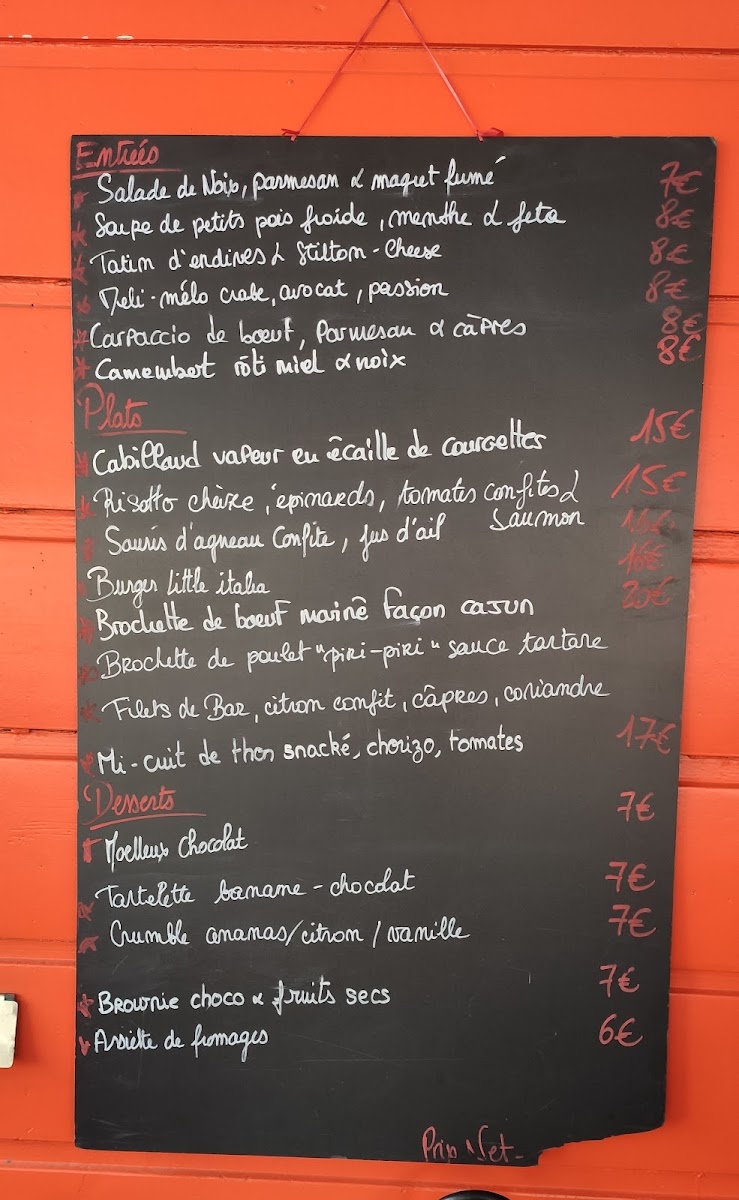 Entrées
Salade de Noix, parmesan & magret fumé 7€
Soupe de petits pois froide, menthe & feta 8€
Tatin d'endives & Stilton-Cheese 8€
Méli-mélo crabe, avocat, passion 8€
Carpaccio de bœuf, Parmesan & câpres 8€
Camembert rôti miel & noix 8€
Plats
Cabillaud vapeur en écaille de courgettes 15€
Risotto chèvre, épinards, tomates confites & 15€
Saumon
Souris d'agneau Confite, jus d'ail
Burger Little italia 16€
Brochette de boeuf mariné façon cajun 20€
Brochette de poulet "piri-piri" sauce tartare
Filets de Bar, citron confit, câpres, coriandre
Mi-cuit de thon snacké, chorizo, tomates 17€
Desserts
Moelleux Chocolat 7€
Tartelette banane-chocolat 7€
Crumble ananas/citron/vanille 7€
Brownie choco & fruits secs 7€
Assiette de fromages 6€
Prix Net-